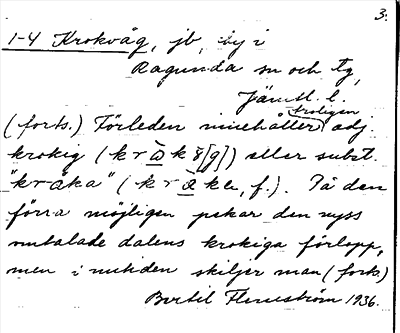 3.
1-4 Krokvåg, jb, by i
Ragunda sn och tg,
Jämtl. l.
troligen
(forts.) Förleden innehåller adj.
krokig (krωk8[g]) eller subst.
"kråka" (kr k , f.). På den
förra möjligen pekar den nyss
omtalade dalens krokiga förlopp,
men i nutiden skiljer man (forts.)
Bertil Flemström 1936.